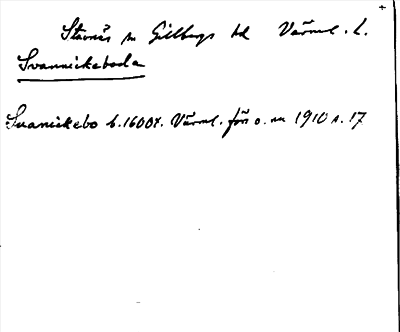 +
Stavnäs sn Gillbergs hd Värml. l.
Svannickeboda
Svanickebo b. 1600t. Värml. förr o. nu 1910 s. 17